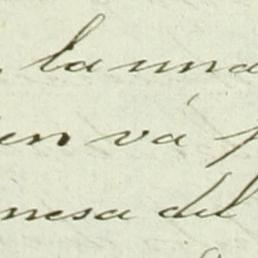 la una
en vá
nesa del